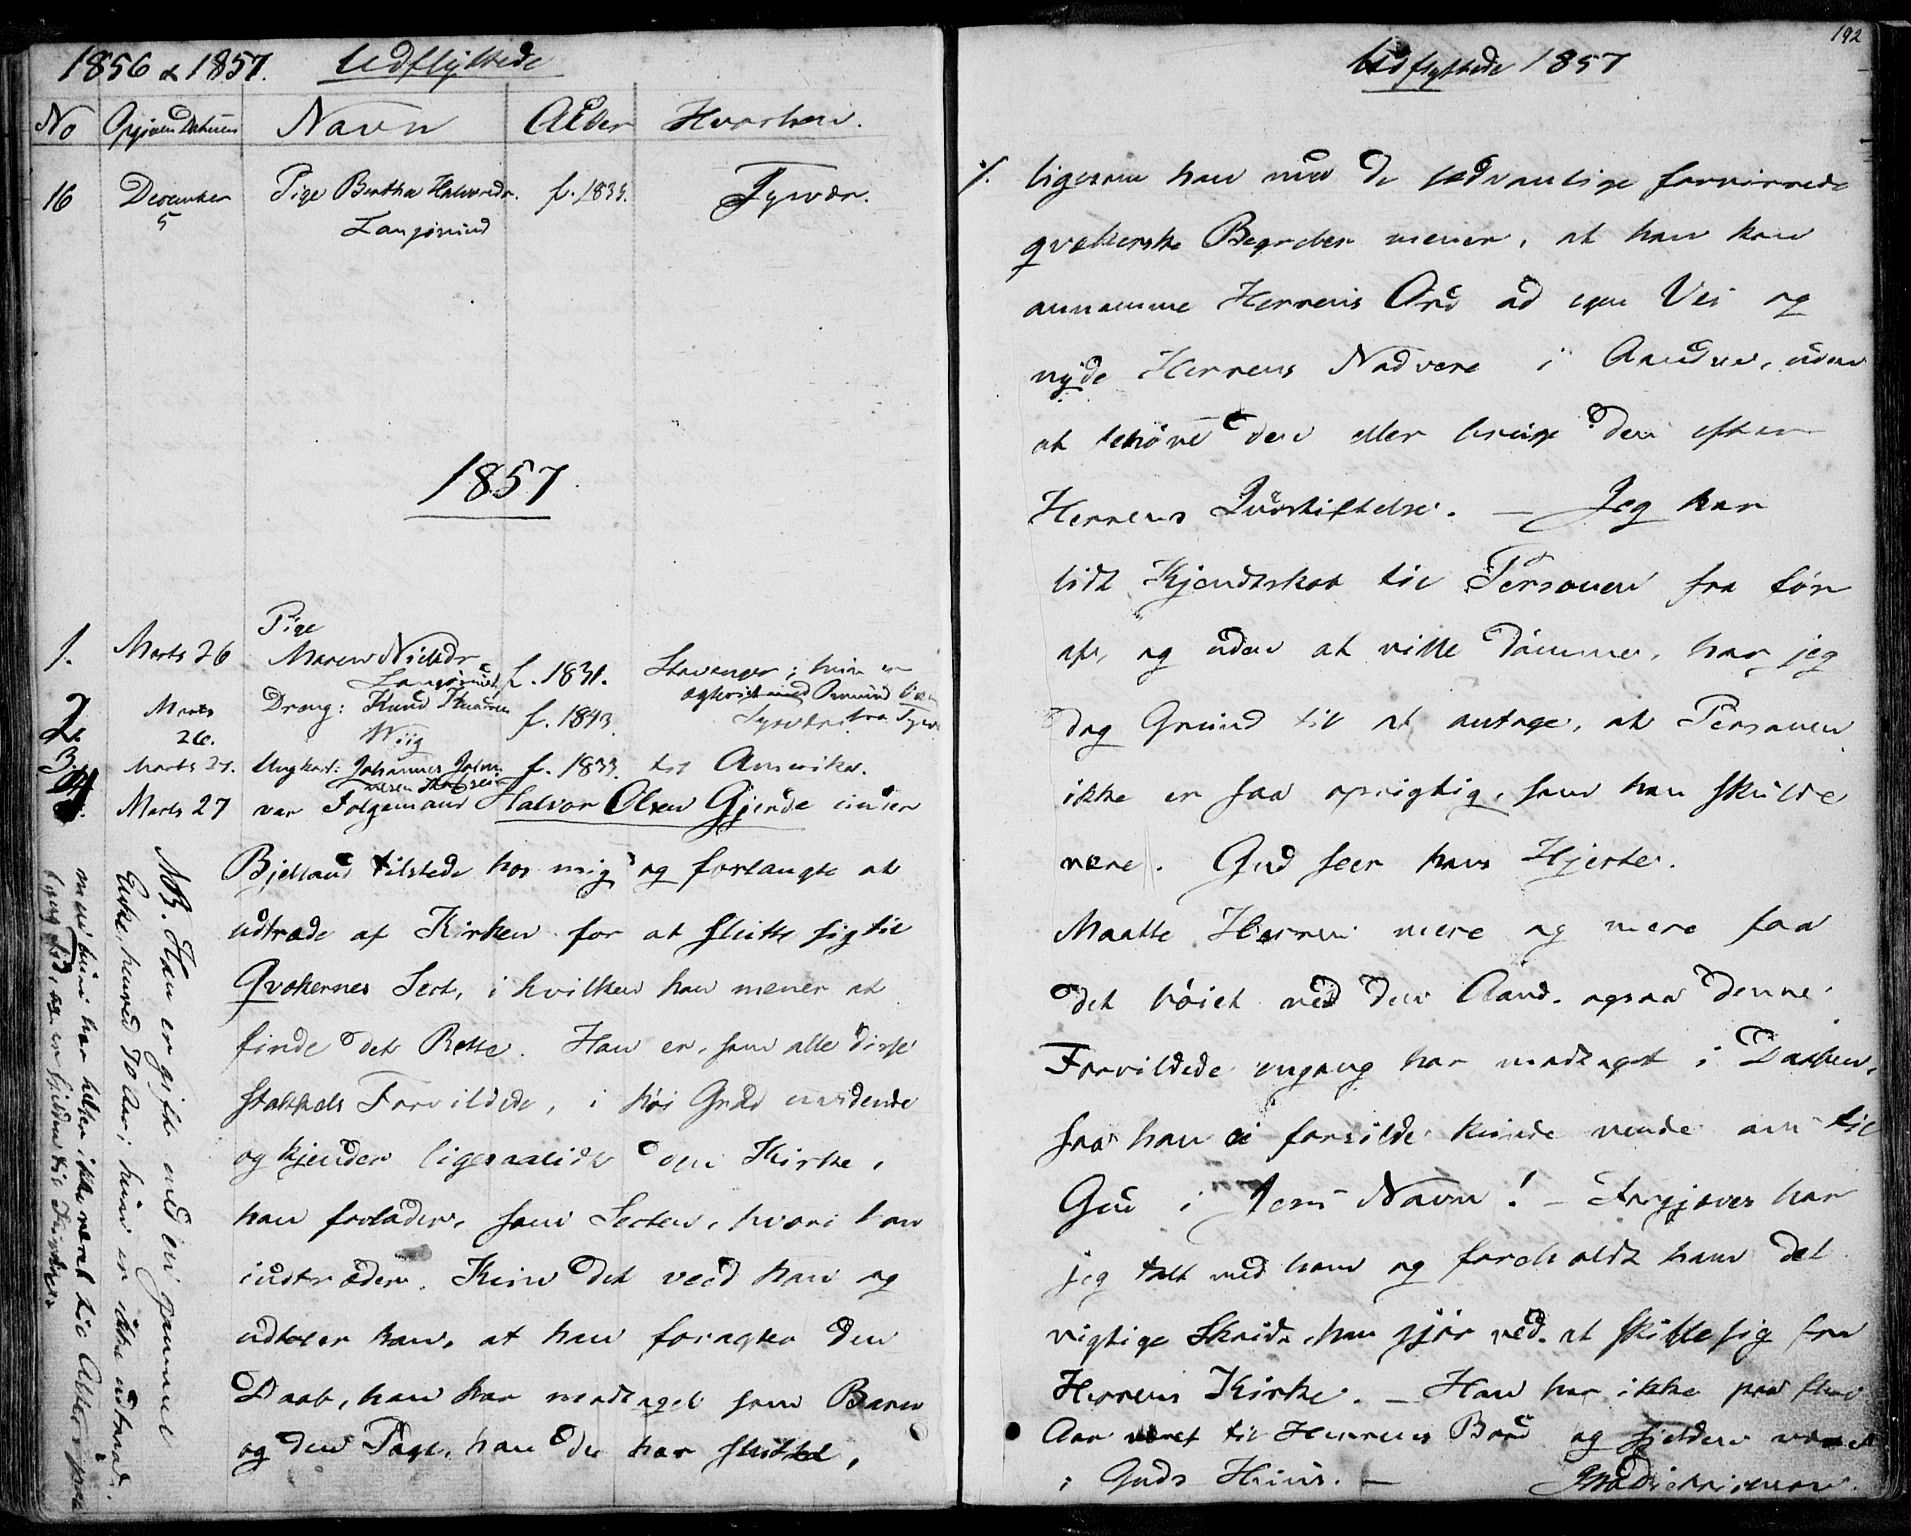 1856 & 1857. Udflyttede
No Opgiven Datum Navn Alder Hvorhen.
16 December 5 Pige Bertha Halvorsdr. f. 1835. Tysvær.
Langørind
1857
Pige
1. Marts 26 Maren Nielsdr f. 1831. Stavanger; hun er
2. Marts 26. Dreng: Knud Knudsen f. 1843.
Wiig
3. Marts 27. Ungkarl: Johannes f. 1833. til Amerika.
4. Marts 27 var Folgemand Halvor Olsen Gjerde under
Bjelland tilstede hos mig og forlangte at
udtræde af Kirken for at slutte sig til
Qvækernes Sect, i hvilken han mener at
finde det Rette. Han er, som alle disse
stakkels Forvildede, i høi Grad uvidende
og kjender ligesaalidt den Kirke,
han forlader, som Secten, hvori han
indtræder. Kun det veed han og
udtaler han, at han foragter den
Daab, han har modtaget som Barn
og den Pagt, han der har sluttet,
NB. Han er gift med en gammel
Enke, henved 70 Aar; hun er ikke udtraadt,
men hun har heller ikke været til Alters paa
lang Tid, og er sjelden til Kirke.
Udflyttede 1857
192
ligesom han med de sædvanlige forvirrede
qvækerske Begreber mener, at han kan
annamme Herrens Ord ad egen Vei og
nyde Herrens Nadvere i Aanden, uden
at behøve den eller bruge den efter
Herrens Indstiftelse. — Jeg har
lidt Kjendtskab til Personen fra før
af, og uden at ville dømme, har jeg
dog Grund til at antage, at Personen
ikke er saa oprigtig, som han skulde
være. Gud seer hans Hjerte.
Maatte Herren mere og mere faa
det bøiet ved den Aand, ogsaa denne
Forvildede engang har modtaget i Daaben,
saa han ei forsilde kunde vende om til
Gud i Jesu Navn! — Forgjæves har
jeg talt med ham og foreholdt ham det
vigtige Skridt, han gjør ved at skille sig fra
Herrens Kirke. — Han har ikke paa flere
Aar været til Herrens Bord og sjelden været
i Guds Huus. —